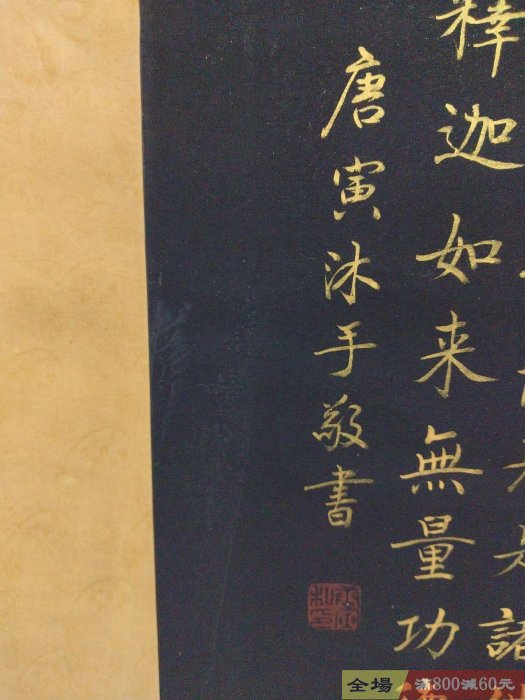 釋迦如来無量功
唐寅沐手敬書
全場 滿800減60元